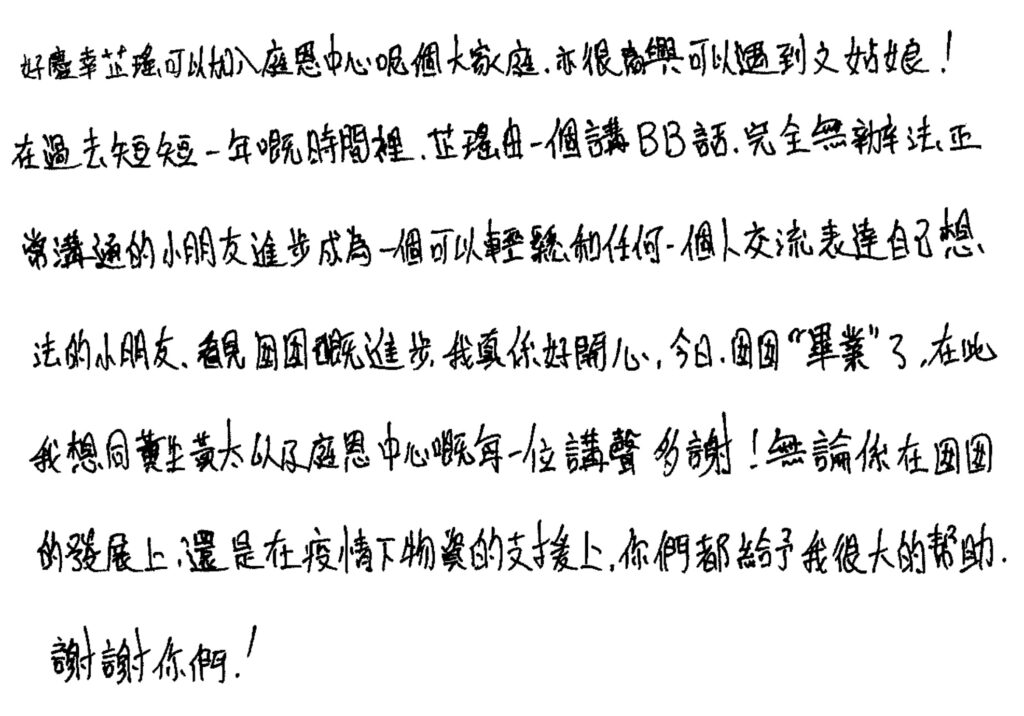 好慶幸芷瑤可以加入庭恩中心呢個大家庭.亦很高興可以遇到文姑娘!
在過去短短一年嘅時間裡.芷瑤由一個講BB話.完全無辦法正
常溝通的小朋友進步成為一個可以輕鬆和任何一個人交流表達自己想
法的小朋友.看見囡囡嘅進步,我真係好開心,今日.囡囡"畢業"了,在此
我想同黃生黃太以及庭恩中心嘅每一位講聲多謝!無論係在囡囡
的發展上,還是在疫情下物資的支援上,你們都給予我很大的帮助.
謝謝你們!